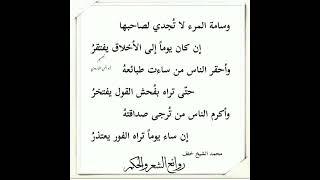 وسامة المرء لا تُجدي لصاحبها
إن كان يوماً إلى الأخلاق يفتقرُ
وأحقر الناس من ساءت طبائعهُ
حتّى تراه بفُحش القول يفتخرُ
وأكرم الناس من تُرجى صداقتهُ
إن ساء يوماً تراه الفور يعتذرُ
محمد الشيخ خلف
روائع الشعر والحكم